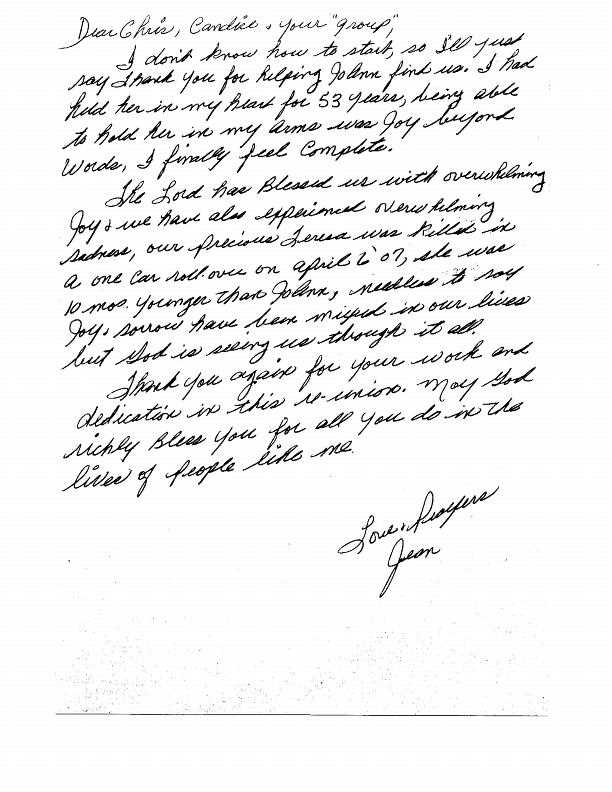 Dear Chris, Candice & your "group",
I don't know how to start, so I'll just
say Thank you for helping JoAnn find us. I had
held her in my heart for 53 years, being able
to hold her in my arms was Joy beyond
Words, I finally feel Complete.
The Lord has Blessed us with overwhelming
Joy & we have also experienced overwhelming
sadness, our precious Teresa was killed in
a one car roll-over on april 6 07, she was
10 mos. younger than JoAnn, needless to say
Joy & sorrow have been mixed in our lives
but God is seeing us through it all.
Thank you again for your work and
dedication in this re-union. May God
richly Bless you for all you do in the
lives of people like me.
Love & Prayers
Jean